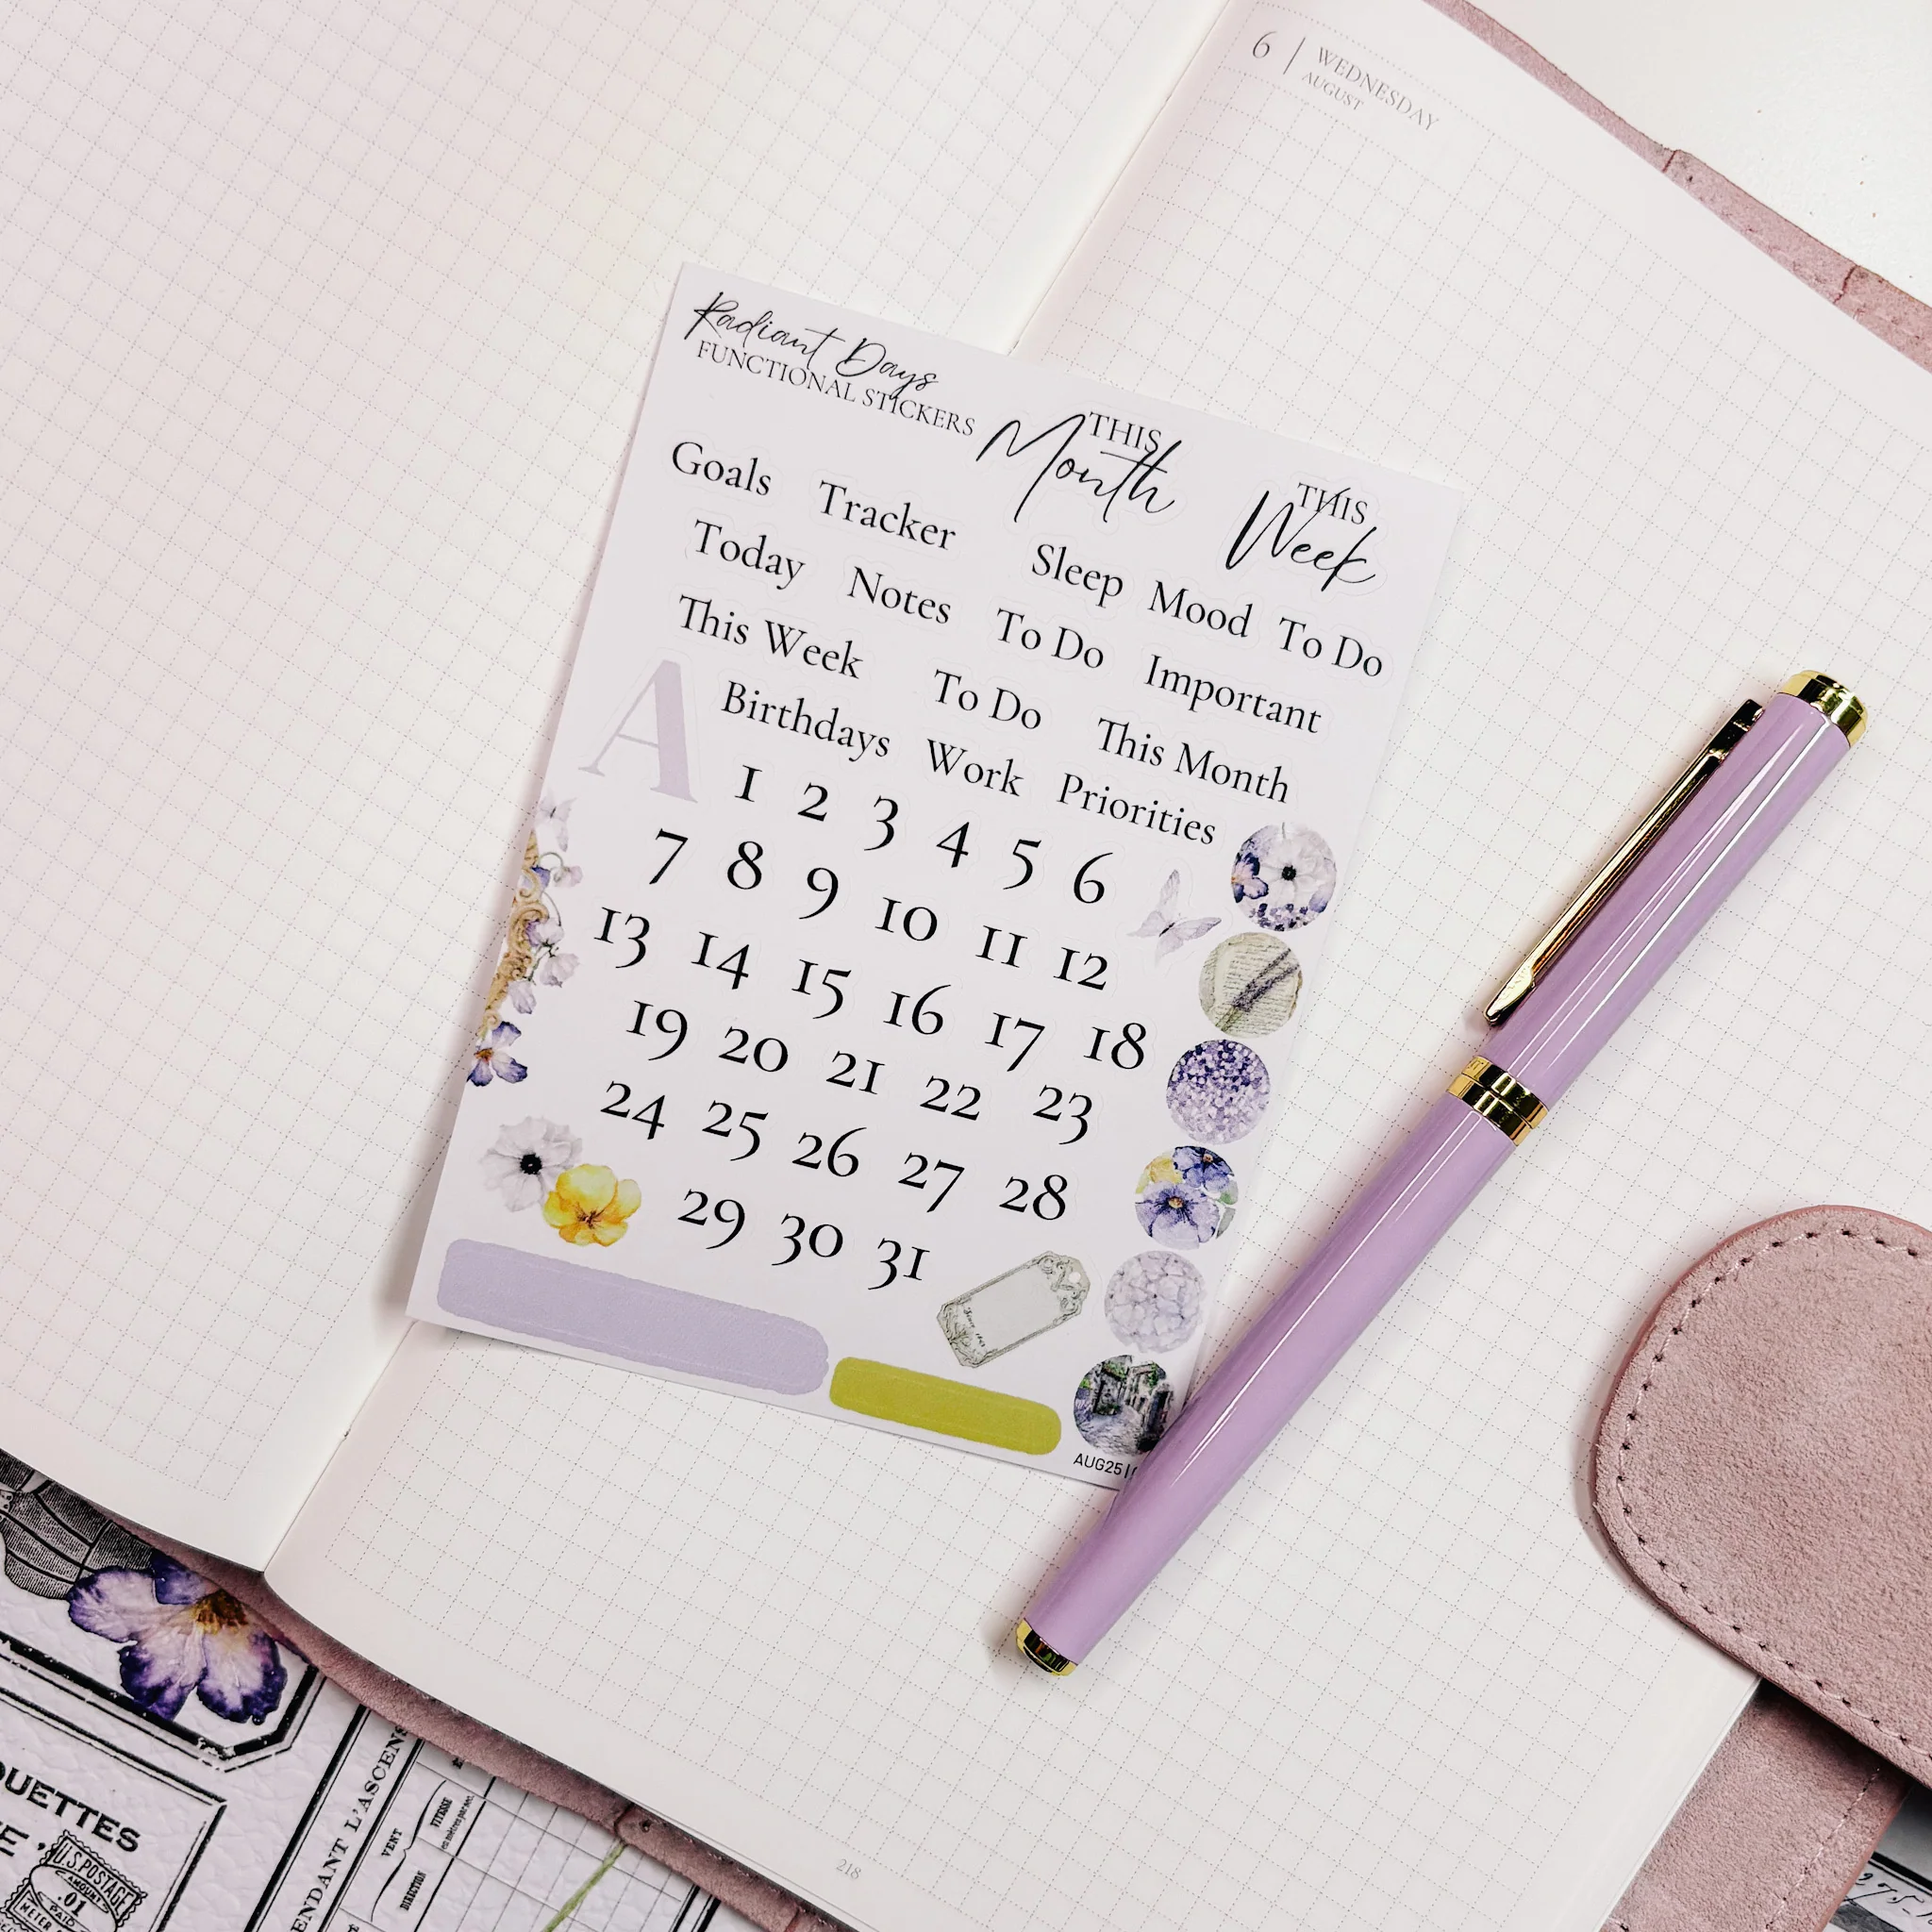 6 | WEDNESDAY
AUGUST
Radiant Days
FUNCTIONAL STICKERS
THIS
Month
THIS
Week
Goals Tracker Sleep Mood To Do
Today Notes To Do Important
This Week To Do This Month
A Birthdays Work Priorities
1 2 3 4 5 6
7 8 9 10 11 12
13 14 15 16 17 18
19 20 21 22 23
24 25 26 27 28
29 30 31
AUG25|
218
QUETTES
U.S. POSTAGE
AMOUNT
.01
PAID
METER
ENDANT L'ASCENS
VENT
VITESSE
DIRECTION